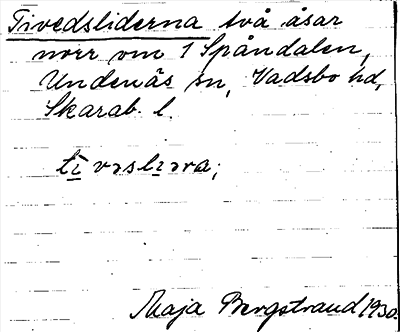 Tivedsliderna två åsar
norr om 1 Spåndalen,
Undenäs sn, Vadsbo hd,
Skarab. l.
ti vəslɩəra;
Maja Bergstrand 1930.